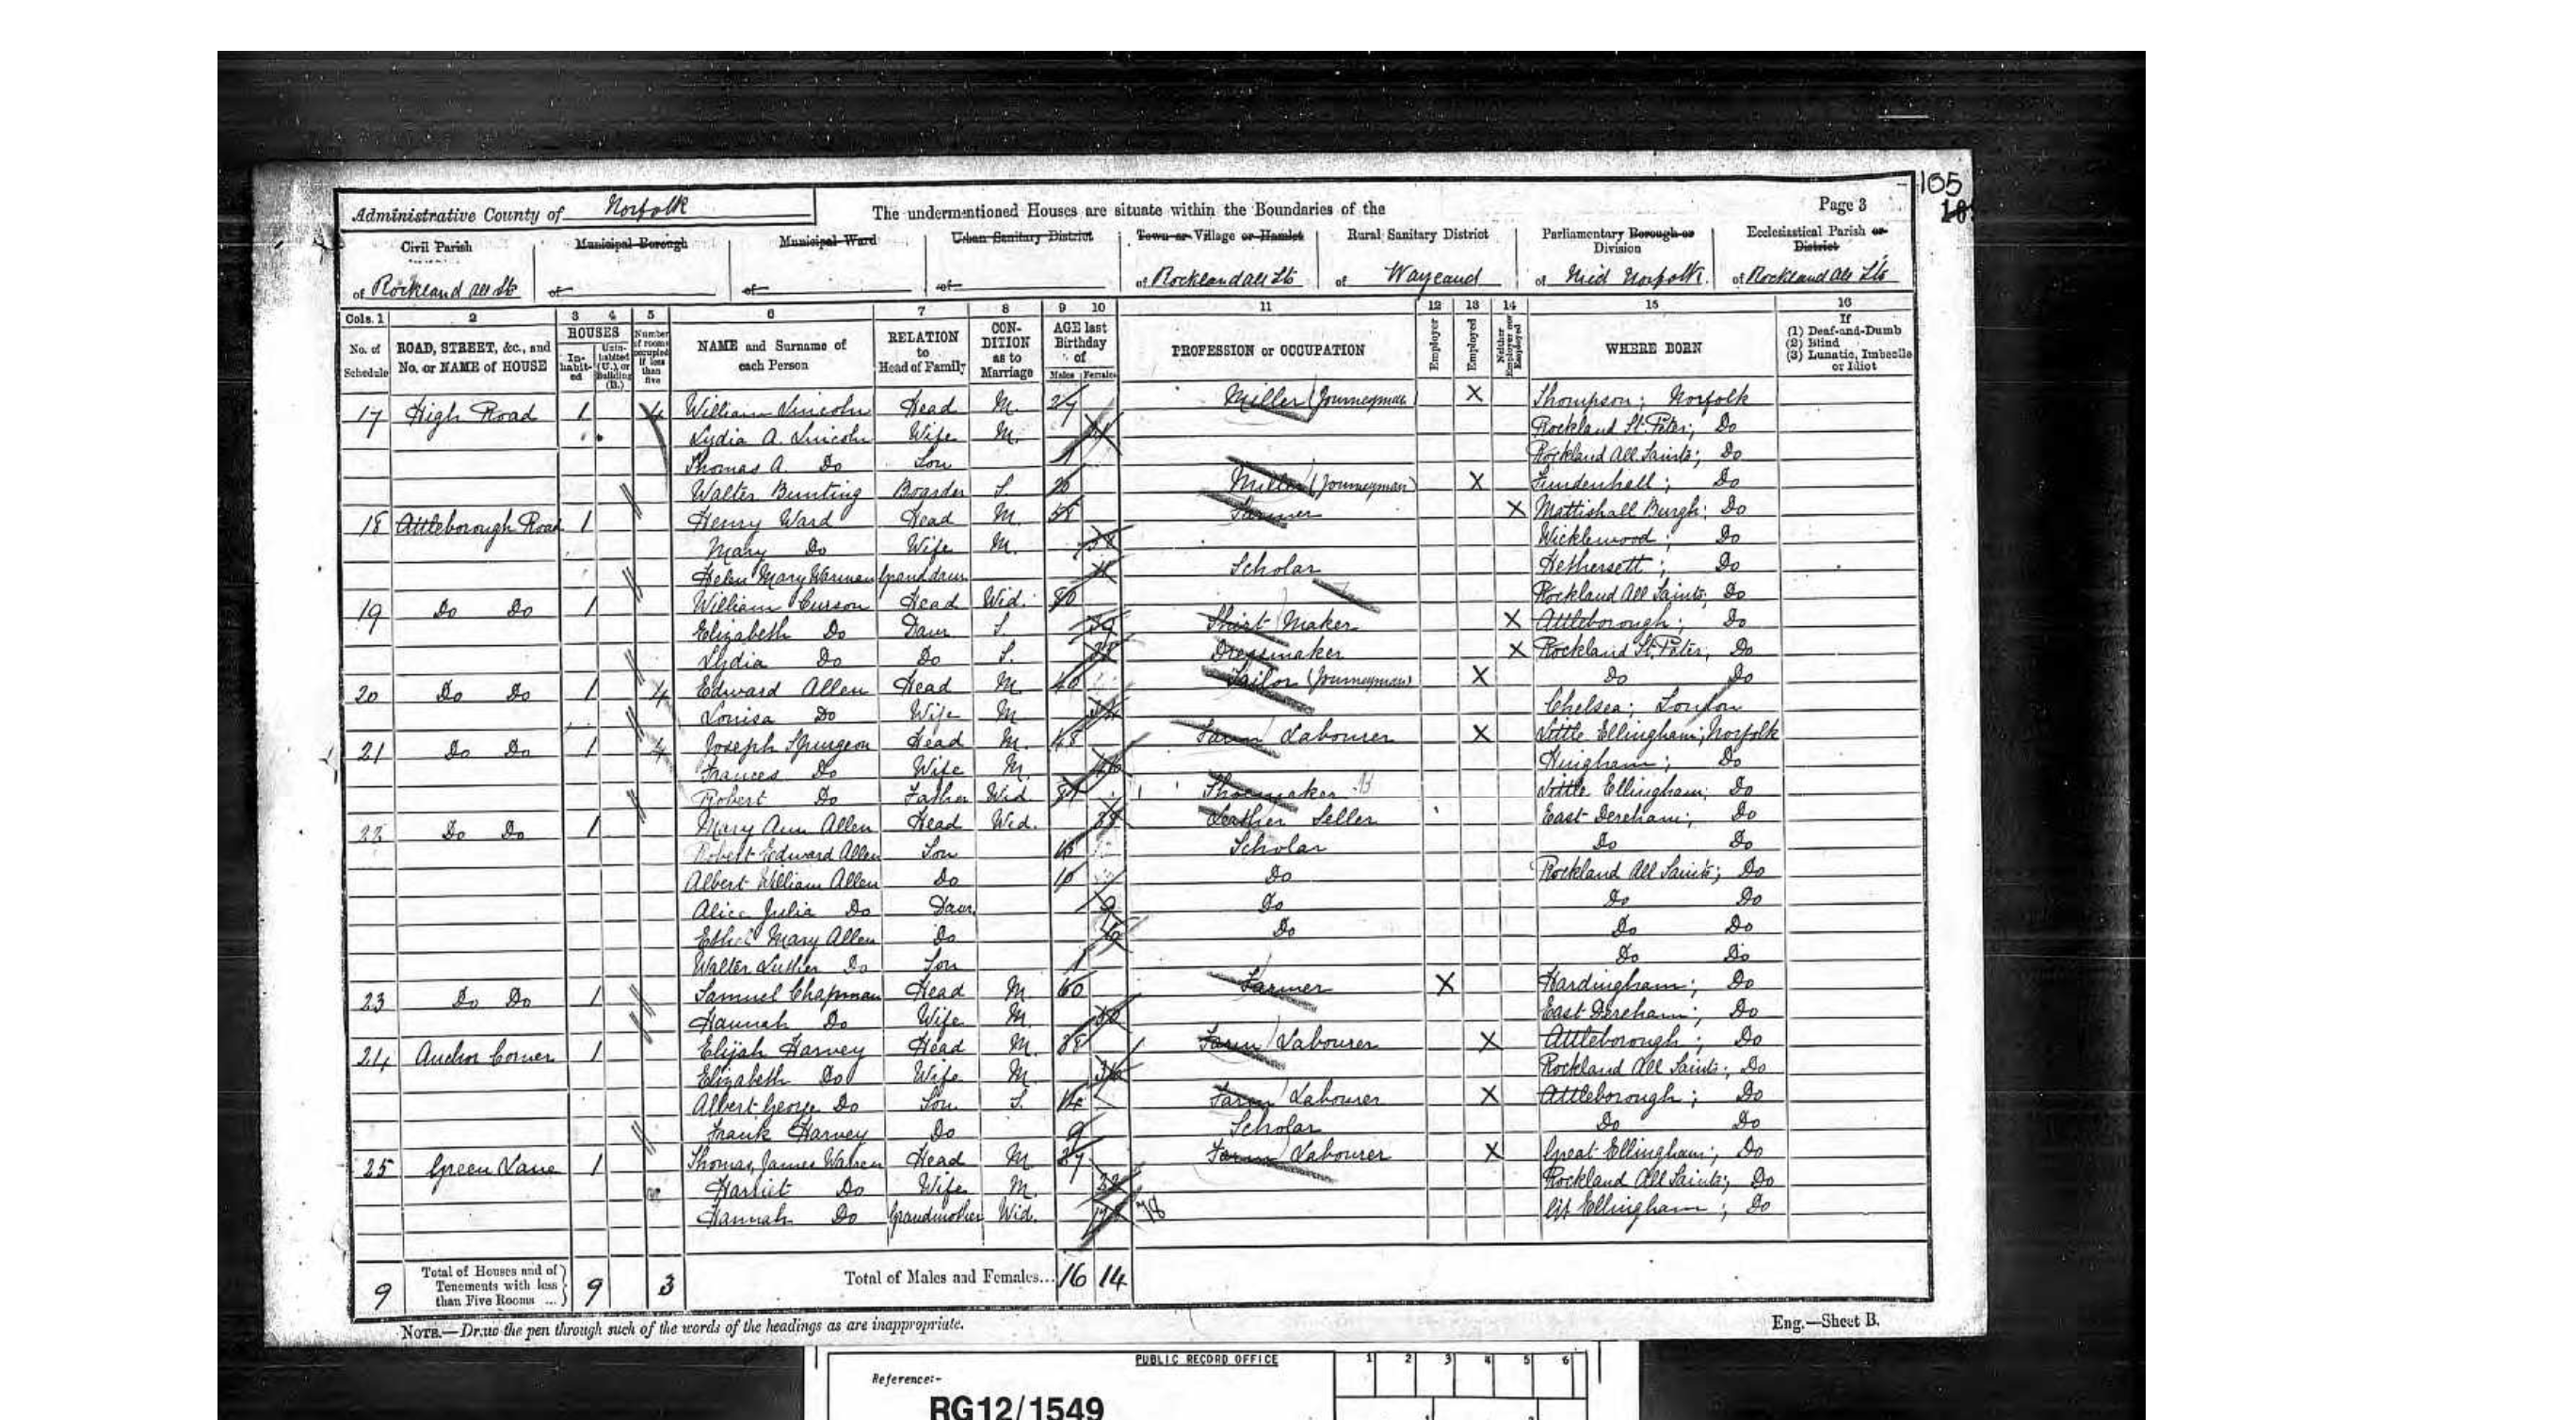 105
Administrative County of Norfolk
The undermentioned Houses are situate within the Boundaries of the
Page 3
Civil Parish
Municipal Borough
Municipal Ward
Urban Sanitary District
Town or Village or Hamlet
Rural Sanitary District
Parliamentary Borough or Division
Ecclesiastical Parish or District
of Rockland All Sts
of
of
of
of Rockland All Sts
of Wayland
of Mid Norfolk
of Rockland All Sts
Cols. 1 2 3 4 5 6 7 8 9 10 11 12 13 14 15 16
No. of Schedule
ROAD, STREET, &c., and No. or NAME of HOUSE
HOUSES
In-habit-ed
Unin-habited (U.), or Building (B.)
Number of rooms occupied if less than five
NAME and Surname of each Person
RELATION to Head of Family
CON-DITION as to Marriage
AGE last Birthday of
Males Females
PROFESSION or OCCUPATION
Employer
Employed
Neither Employer nor Employed
WHERE BORN
If
(1) Deaf-and-Dumb
(2) Blind
(3) Lunatic, Imbecile or Idiot
17 High Road 1 4 William Lincoln Head M. 27 Miller (Journeyman) X Thompson; Norfolk
Lydia A. Lincoln Wife M. Rockland St. Peter; Do
Thomas A. Do Son 1 Rockland All Saints; Do
Walter Bunting Boarder S. 20 Miller (Journeyman) X Fundenhall; Do
18 Attleborough Road 1 Henry Ward Head M. 58 Farmer X Mattishall Burgh; Do
Mary Do Wife M. Wicklewood; Do
Helen Mary Granddaur 11 Scholar Hethersett; Do
19 Do Do 1 William Curson Head Wid. 80 Rockland All Saints; Do
Elizabeth Do Daur S. Shirt Maker X Attleborough; Do
Lydia Do Do S. Dressmaker X Rockland St. Peter, Do
20 Do Do 1 4 Edward Allen Head M. 40 Tailor (Journeyman) X Do Do
Louisa Do Wife M Chelsea; London
21 Do Do 1 4 Joseph Spurgeon Head M. 48 Farm Labourer X Little Ellingham; Norfolk
Frances Do Wife M. 46 Hingham; Do
Robert Do Father Wid Shoemaker Little Ellingham; Do
22 Do Do 1 Mary Ann Allen Head Wid. Leather Seller East Dereham; Do
Robert Edward Allen Son Scholar Do Do
Albert William Allen Do 10 Do Rockland All Saints; Do
Alice Julia Do Daur 9 Do Do Do
Ethel Mary Allen Do 6 Do Do Do
Walter Luther Do Son 1 Do Do
23 Do Do 1 Samuel Chapman Head M 60 Farmer X Hardingham; Do
Hannah Do Wife M. East Dereham; Do
24 Anchor Corner 1 Elijah Harvey Head M. 38 Farm Labourer X Attleborough; Do
Elizabeth Do Wife M. 36 Rockland All Saints; Do
Albert George Do Son S. 14 Farm Labourer X Attleborough; Do
Frank Harvey Do 9 Scholar Do Do
25 Green Lane 1 Thomas James Warren Head M Farm Labourer X Great Ellingham; Do
Harriet Do Wife M. 22 Rockland All Saints; Do
Hannah Do Grandmother Wid. 78 78 Ellingham; Do
9 Total of Houses and of Tenements with less than Five Rooms ... 9 3 Total of Males and Females... 16 14
NOTE.—Draw the pen through such of the words of the headings as are inappropriate.
Eng.—Sheet B.
PUBLIC RECORD OFFICE
1 2 3 4 5 6
Reference:-
RG12/1549